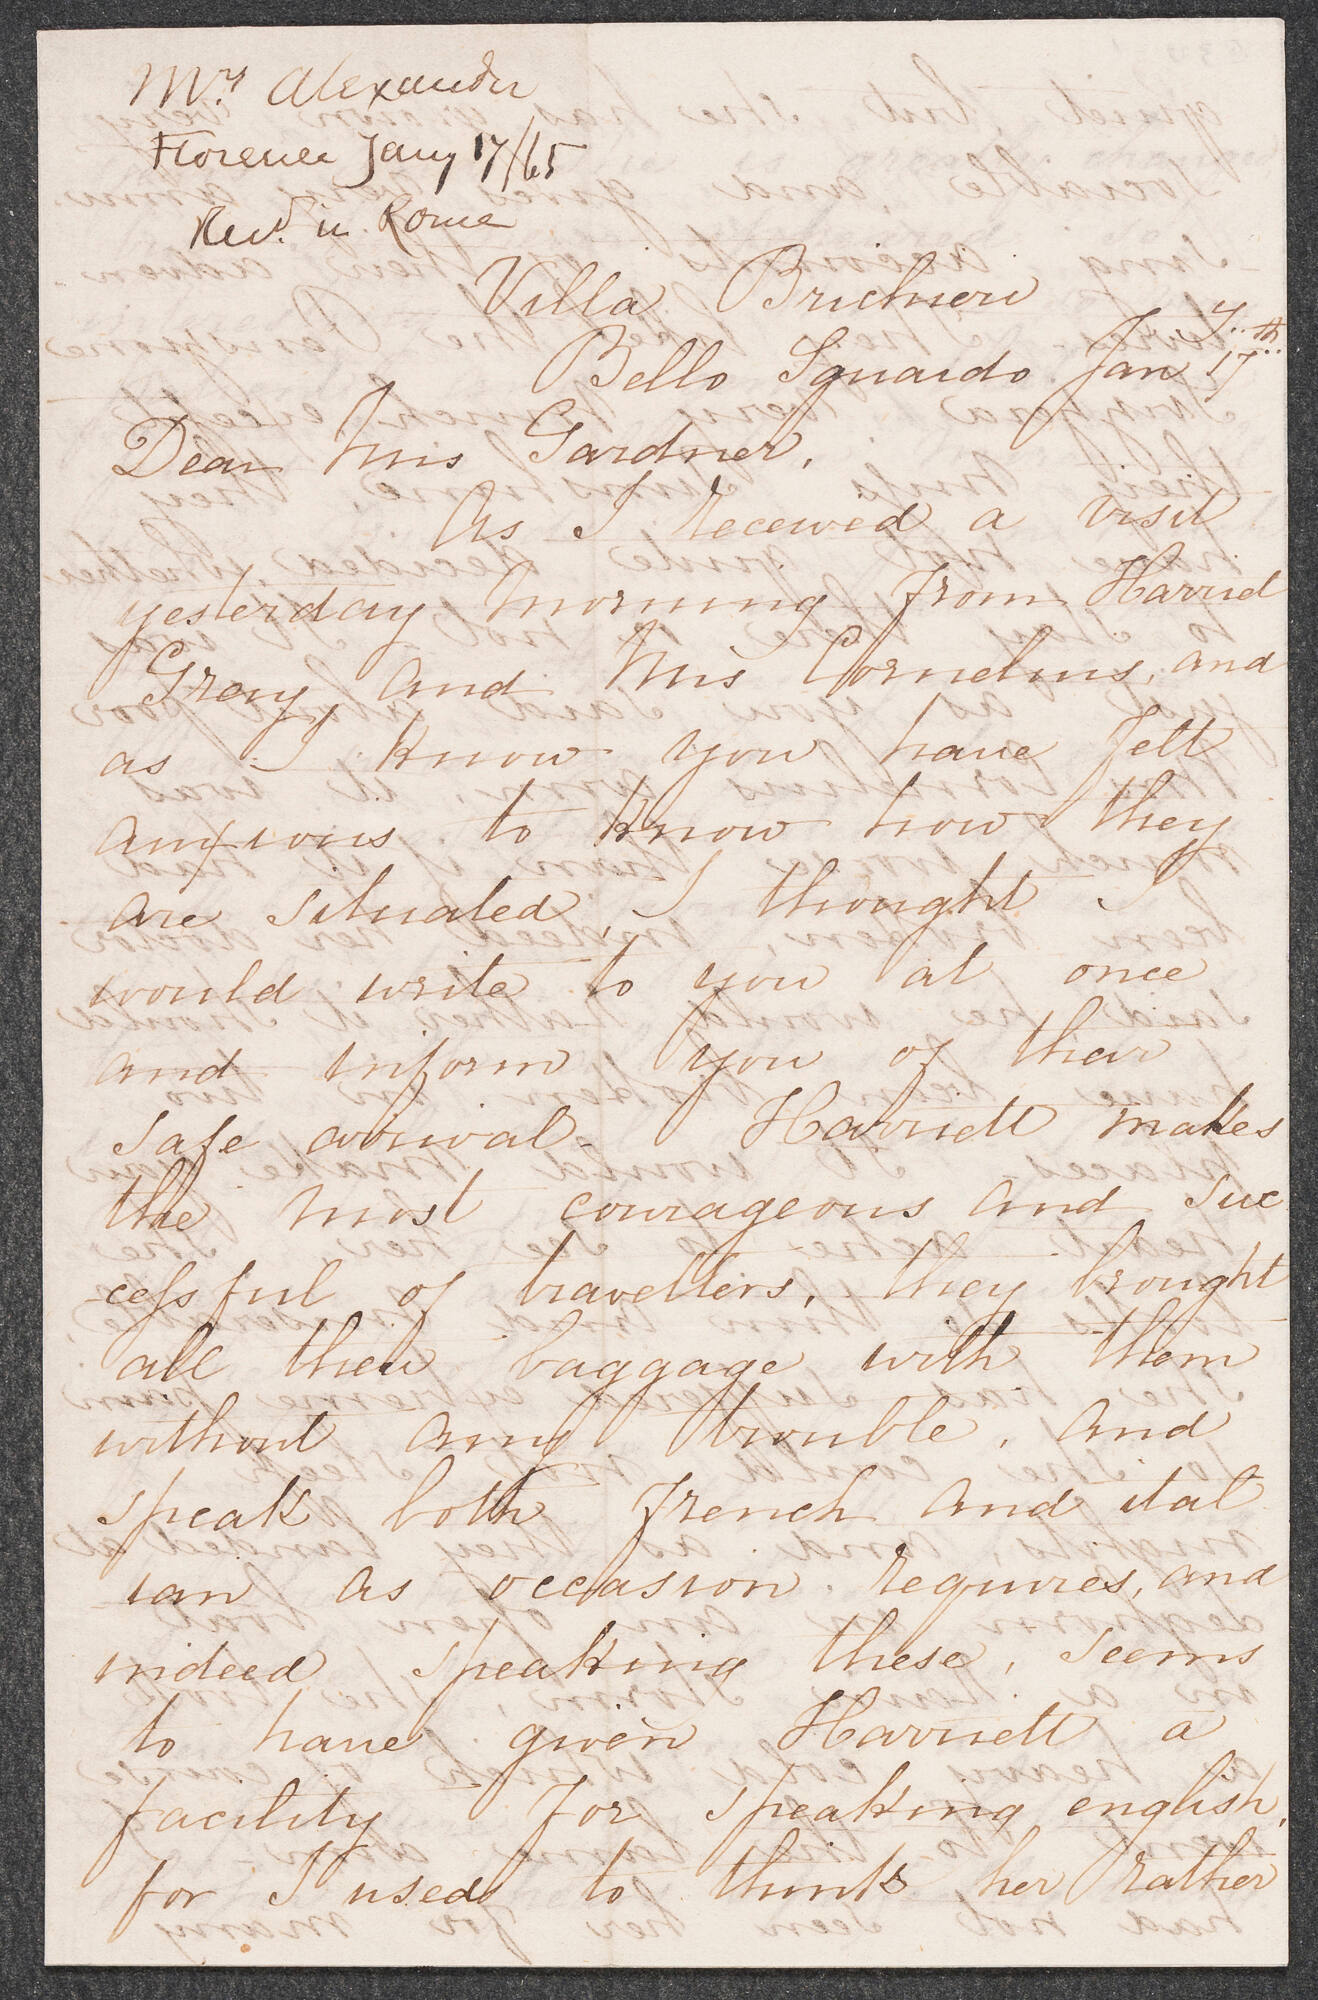 Mrs Alexander
Florence Jany 17/65
Recd. in Rome
Villa Brichieri
Bello Sguardo Jan y 17th
Dear Mrs Gardner,
As I received a visit
yesterday morning from Harriet
Gray and Mrs Cornelius, and
as I know you have felt
anxious to know how they
are situated, I thought I
would write to you at once
and inform you of their
safe arrival. Harriett makes
the most courageous and suc
cessful of travellers, they brought
all their baggage with them
without any trouble, and
speak both french and ital
ian as occasion requires, and
indeed speaking these, seems
to have given Harriett a
facility for speaking english,
for I used to think her rather